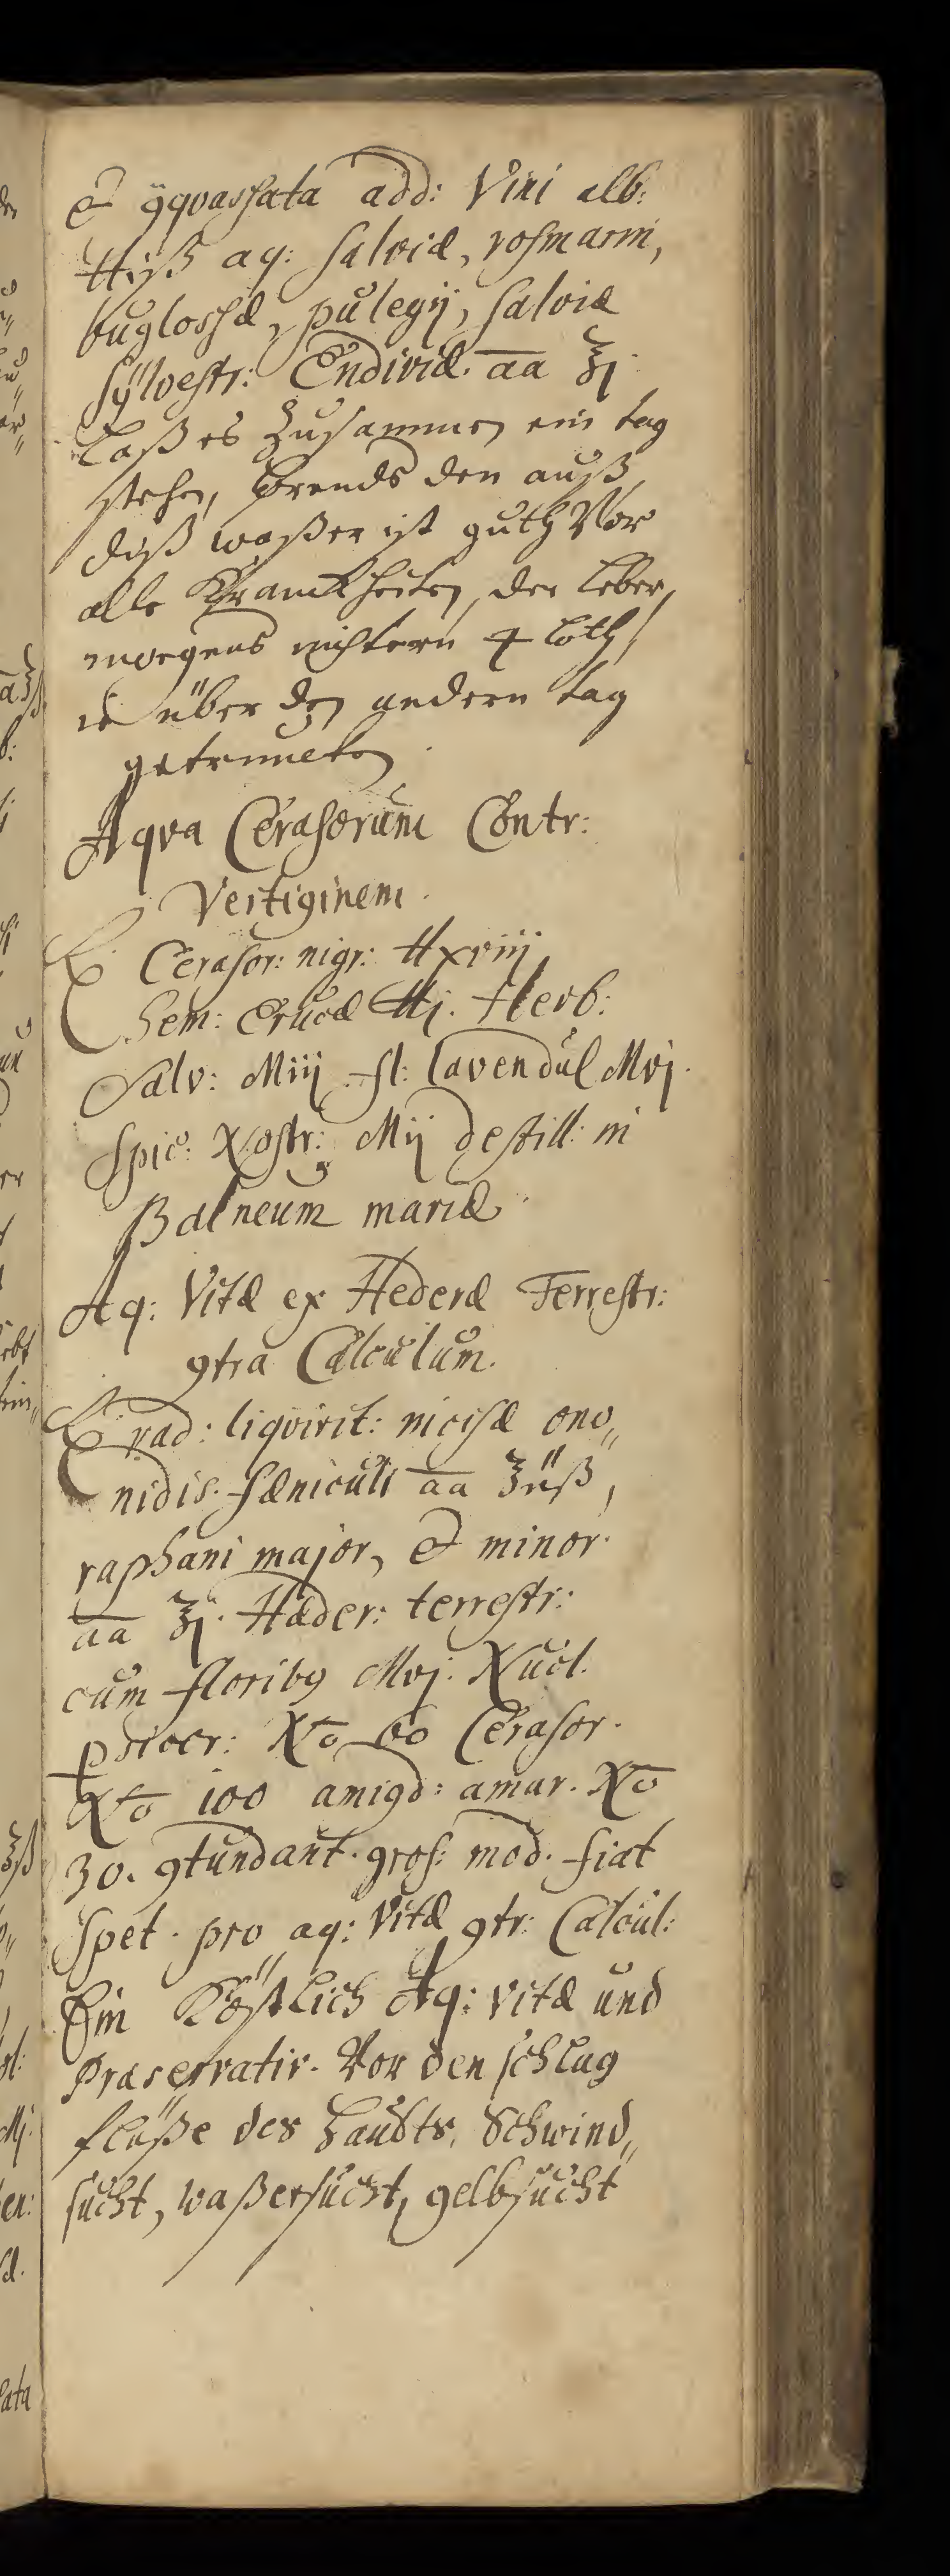 & ꝯqvassata add: Vini alb:
℔jß aq: salviæ, rosmarin,
buglossæ, pulegij, salviæ
sylvestr: Endiviæ. aa ℥j.
Laß es zusammen ein tag
stehen, brends den auß,
diß waßer ist guth Vor
alle Kranckheiten, der leber,
morgens nüchtern 4 loth,
ie über den andern tag
getruncken.
Aqva Cerasorum Contr:
Vertiginem.
℞ Cerasor: nigr: ℔xviij
Sem: Erucæ ℔j. Herb:
Salv: Miij fl: lavendul Mvj.
Spic: Nostr: Mij destill: in
Balneum mariæ.
Aq: Vitæ ex Hederæ Terrestr:
ꝯtra Calculum.
℞ rad: liqvirit: incisæ ono„
nidis. fæniculi aa ℥iiß,
raphani major, & minor.
aa ℥j. Hæder: terrestr:
cum floribꝯ Mvj. Nucl.
persicor: No 60 Cerasor.
No 100 amigd: amar. No
30. ꝯtundant. gros: mod. fiat
spet. pro aq: Vitæ ꝯtr: Calcul:
Ein Köstlich Aq: vitæ und
Præservativ. Vor den schlag
flüße des haubts, Schwind„
sucht, waßersucht, gelbsucht